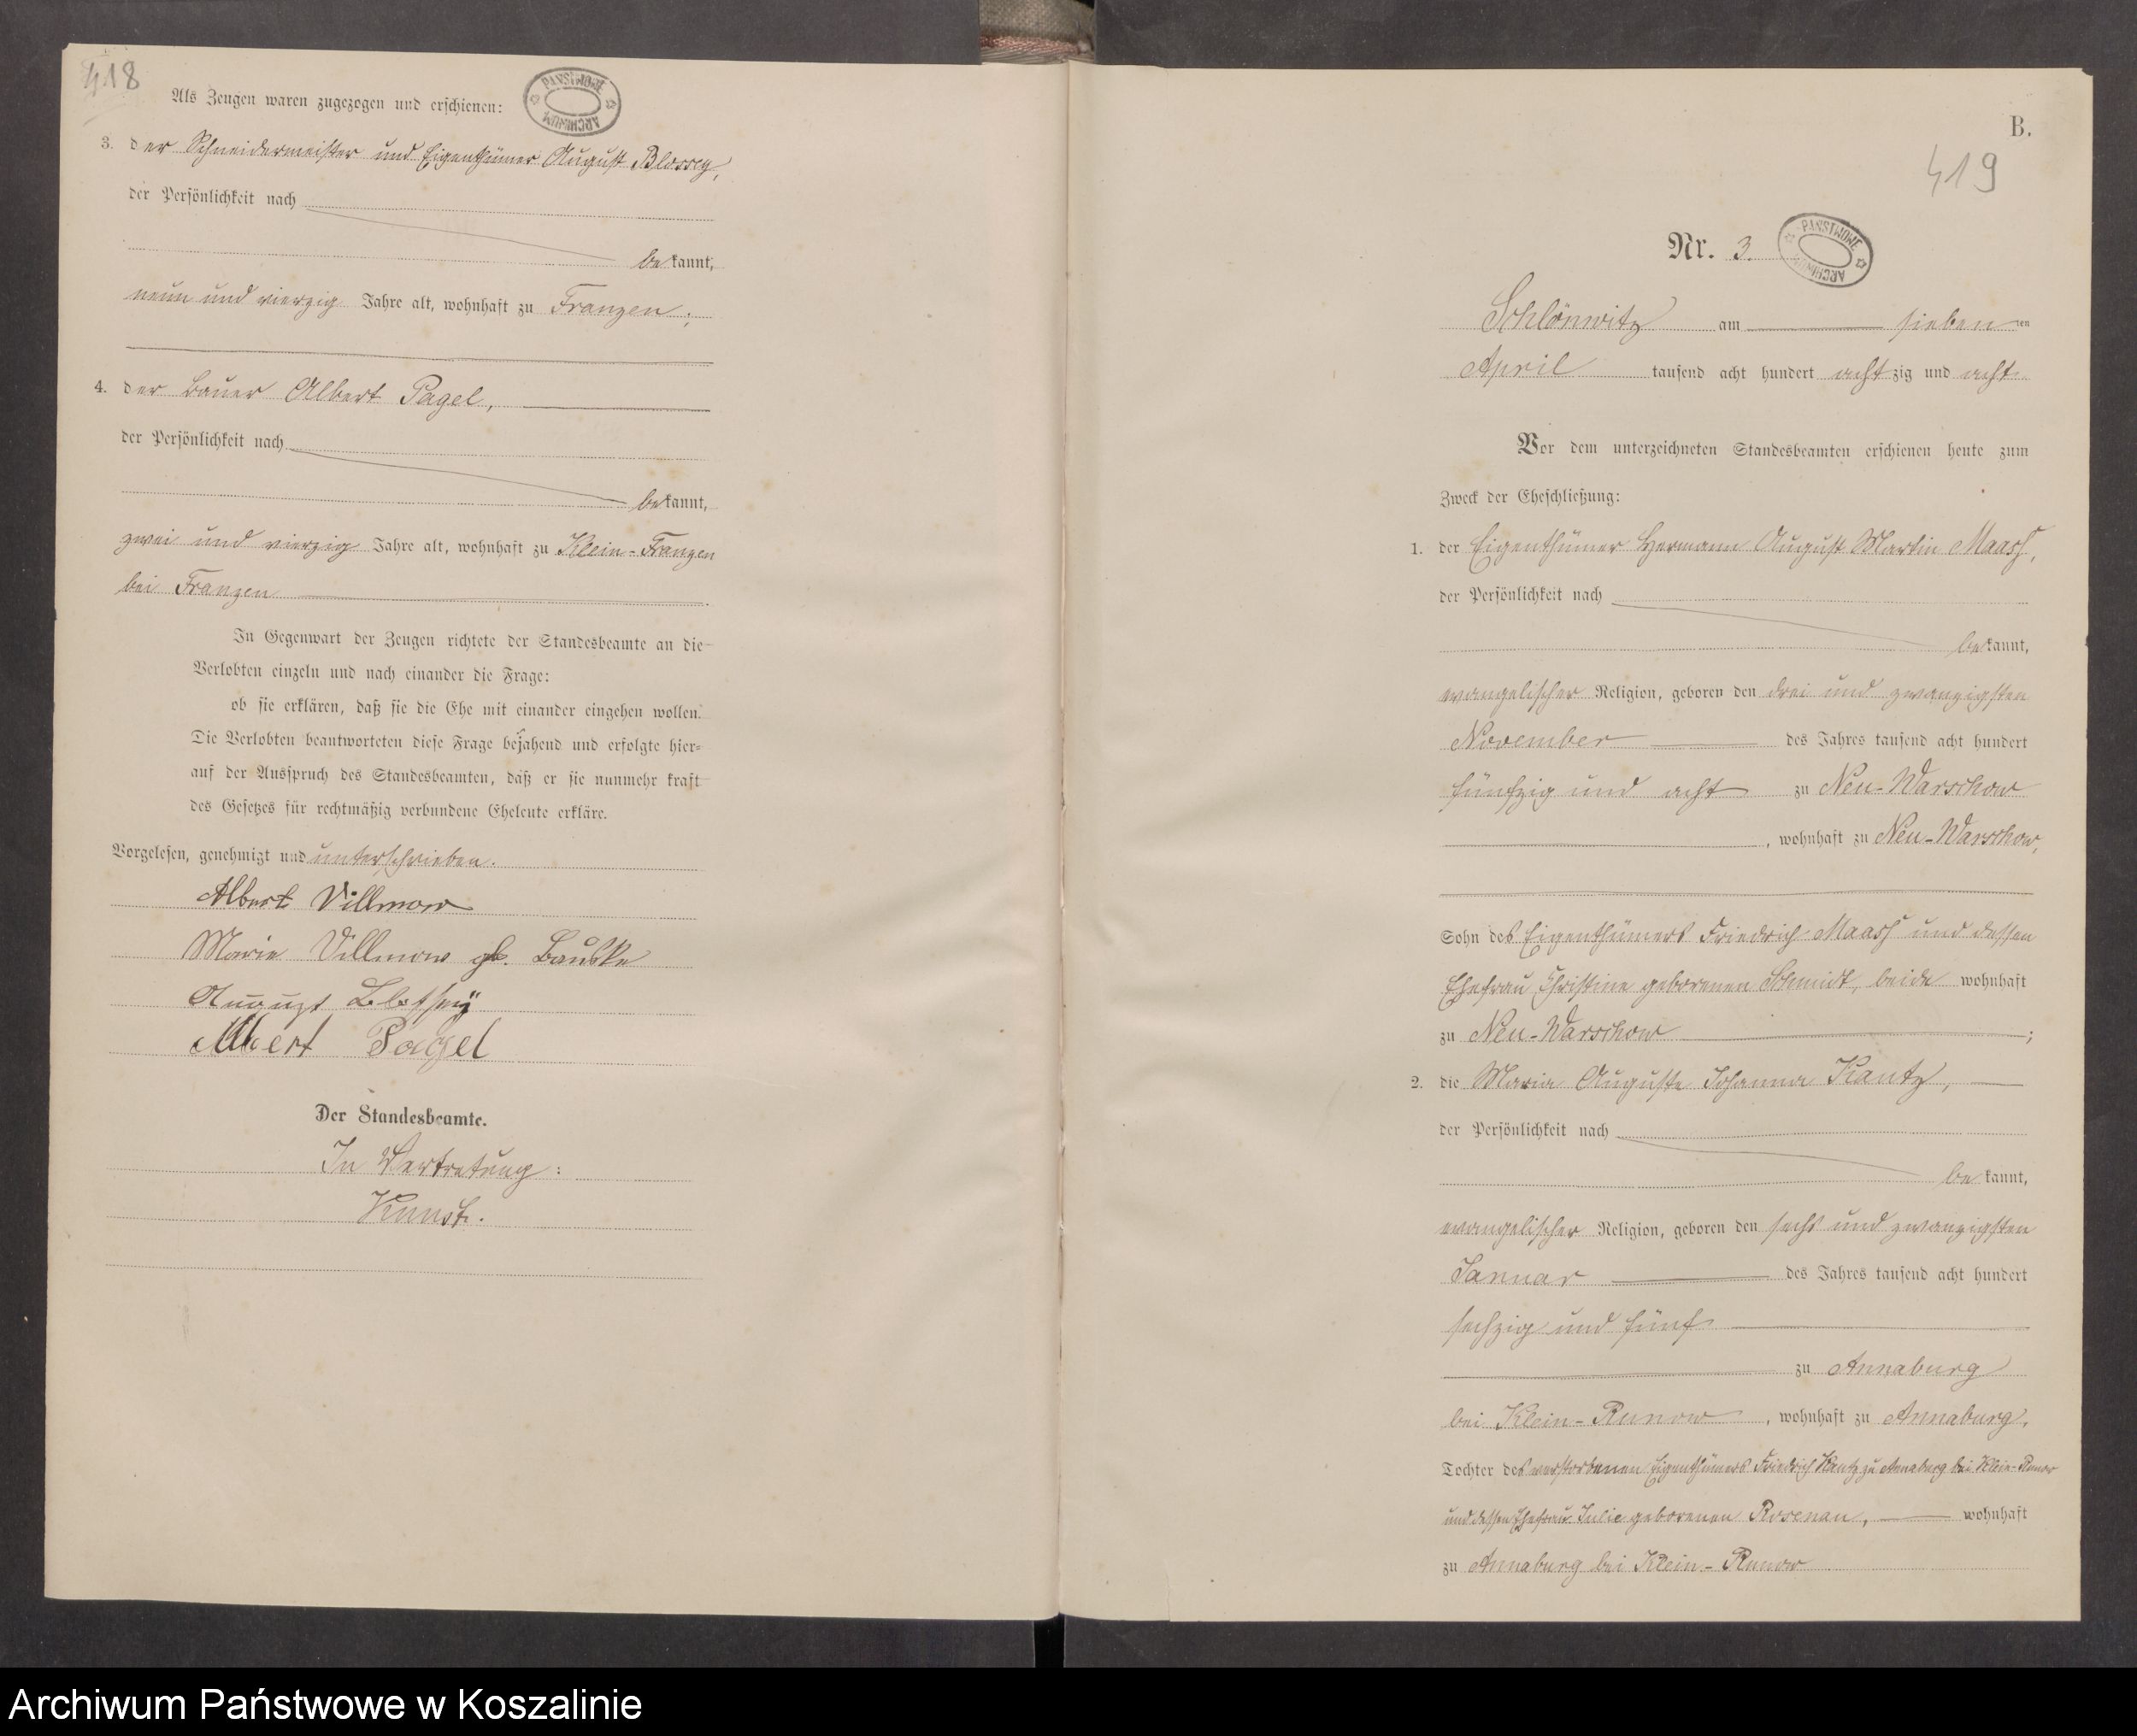 418
Als Zeugen waren zugezogen und erschienen:
PAŃSTWOWE ARCHIWUM
3. der Schneidermeister und Eigenthümer August Blossey,
der Persönlichkeit nach
bekannt,
neun und vierzig Jahre alt, wohnhaft zu Franzen;
4. der Bauer Albert Pagel,
der Persönlichkeit nach
bekannt,
zwei und vierzig Jahre alt, wohnhaft zu Klein-Franzen
bei Franzen
In Gegenwart der Zeugen richtete der Standesbeamte an die
Verlobten einzeln und nach einander die Frage:
ob sie erklären, daß sie die Ehe mit einander eingehen wollen.
Die Verlobten beantworteten diese Frage bejahend und erfolgte hier-
auf der Ausspruch des Standesbeamten, daß er sie nunmehr kraft
des Gesetzes für rechtmäßig verbundene Eheleute erkläre.
Vorgelesen, genehmigt und unterschrieben.
Albert Villmow
Marie Villmow gb. Bauske
August Blossey
Albert Pagel
Der Standesbeamte.
In Vertretung:
Kunst.
B.
419
Nr. 3.
PAŃSTWOWE ARCHIWUM
Schlönwitz am sieben ten
April tausend acht hundert achtzig und acht
Vor dem unterzeichneten Standesbeamten erschienen heute zum
Zweck der Eheschließung:
1. der Eigenthümer Hermann August Martin Maass,
der Persönlichkeit nach
bekannt,
evangelischer Religion, geboren den drei und zwanzigsten
November des Jahres tausend acht hundert
fünfzig und acht zu Neu-Warschow
, wohnhaft zu Neu-Warschow,
Sohn des Eigenthümers Friedrich Maass und dessen
Ehefrau Christine geborenen Schmidt, beide wohnhaft
zu Neu-Warschow ;
2. die Maria Auguste Johanna Kautz,
der Persönlichkeit nach
bekannt,
evangelischer Religion, geboren den sechs und zwanzigsten
Januar des Jahres tausend acht hundert
sechzig und fünf
zu Annaburg
bei Klein-Runow, wohnhaft zu Annaburg,
Tochter des verstorbenen Eigenthümers Friedrich Kautz zu Annaburg bei Klein-Runow
und dessen Ehefrau Julie geborenen Rosenau, wohnhaft
zu Annaburg bei Klein-Runow
Archiwum Państwowe w Koszalinie